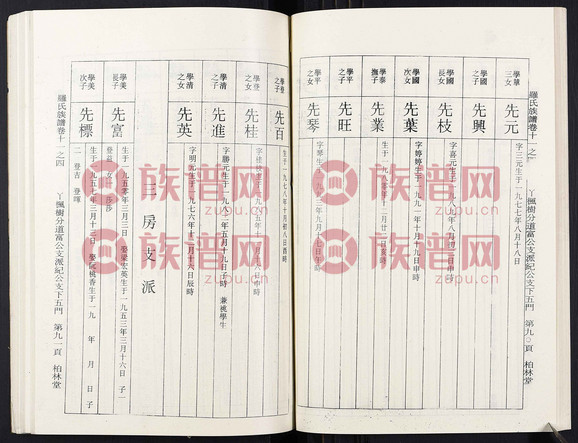 學華
三女
先元
字三元生于一九七七年八月十八日
學國
之子
先興
學國
長女
先枝
字喜元生于一九八九年八月初二日申時
學國
次女
先葉
字婷婷生于一九九二年十月十九日申時
學泰
撫子
先業
生于一九八零年十二月廿二日亥時
學平
之子
先旺
學平
之女
先琴
羅氏族譜卷十一之
丫楓樹分道富公支派紀公支下五門
第九〇頁
柏林堂
學登
之子
先百
生于一九七八年十月初八日酉時
學登
之女
先桂
學清
之子
先進
字勝元生于一九八二年五月十九日子時
兼祧學生
學清
之女
先英
字明元生于一九七六年十二月十六日辰時
三房支派
學美
長子
先富
生于一九五零年三月二日
娶梁宏英生于一九五三年三月十六日
子一
登益
女一
莎莎
學美
次子
先標
生于一九五七年三月十二日
桃香生于一九
年
月
日
子
二
登吉
登暉
羅氏族譜卷十一之四
丫楓樹分道富公支派紀公支下五門
第九一頁
柏林堂
族谱网
zupu.cn
族谱网
zupu.cn
族谱网
zupu.cn
族谱网
zupu.cn